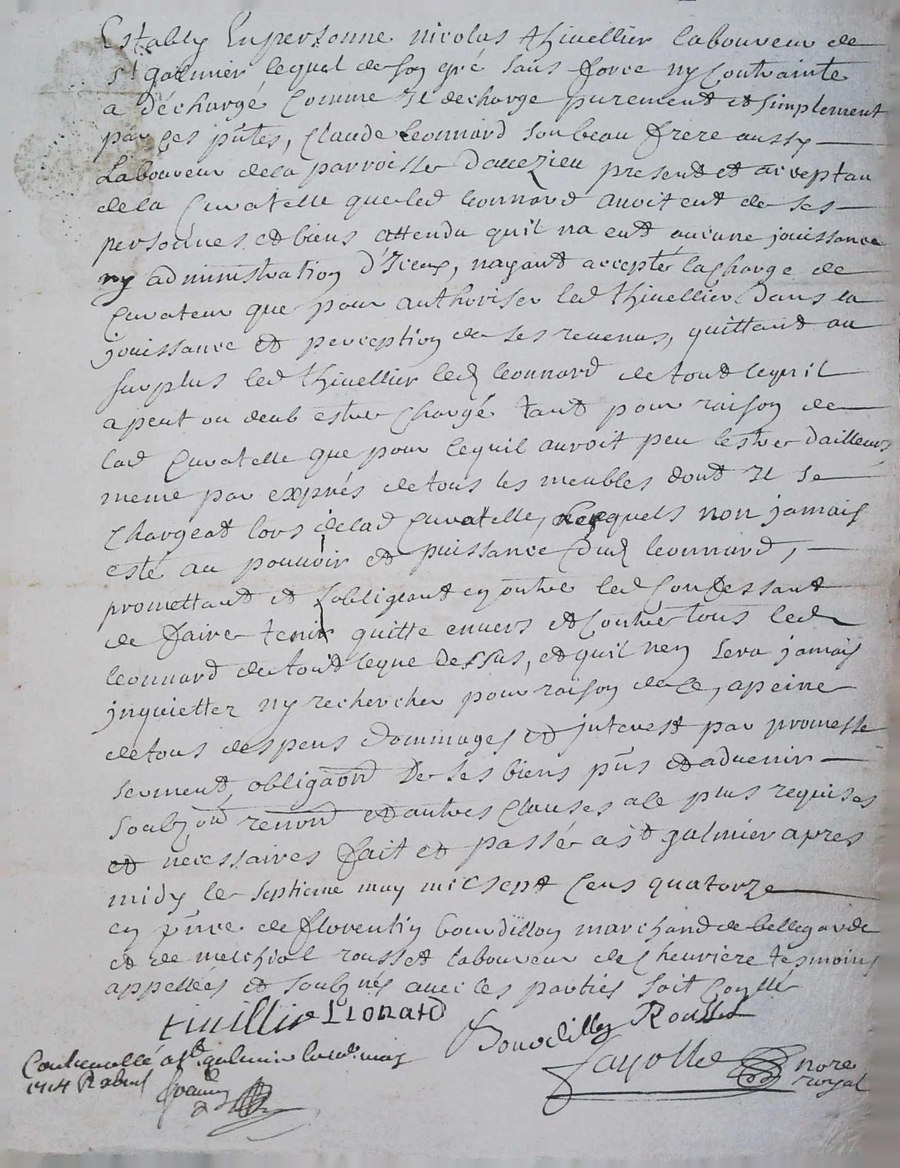 Estably En personne nicolas thivellier laboureur de
st galmier lequel de son gré sans force ny Contrainte
a déchargé Comme Il decharge purement et simplement
par ces pntes, Claude Leonnard son beau frere aussy
Laboureur de la parroisse daveizieu present et acceptan
de la Curatelle que led leonnard avoit eut de ses
personnes et biens attendu quil na eut aucune jouissance
ny administration d'Iceux, nayant accepté la Charge de
Curateur que pour authoriser led thivellier dans la
jouissance et perception de ses revenus, quittant au
surplus led thivellier led leonnard de tout lequil
a peut ou deub estre Chargé tant pour raison de
lad Curatelle que pour lequil auroit peu lestre dailleurs
meme par exprés de tous les meubles dont Il se
Chargeat lors de lad Curatelle, lesquels non jamais
esté au pouvoir et puissance dud leonnard,
promettant et sobligeant en outre led Confessant
de faire tenir quitte envers et Contre tous led
leonnard de tout leque dessus, et quil nen sera jamais
jnquietter ny rechercher pour raison de ce, a peine
de tous despens dommages et jnterest par promesse
serment, obligaon de ses biens pns et advenir
renon et autres Clauses a le plus requises
et necessaires fait et passé a st galmier apres
midy le septieme may mil sept Cens quatorze
en pnce de florentin bourdillon marchand de bellegarde
et de melchiol rousset laboureur de Chevriere tesmoins
appellées et soubnés avec les parties soit Conllé
tivillie Lionard
Bourdillon Rousset
Controllé a st galmier le may
1714 R
fayolle nore
royal